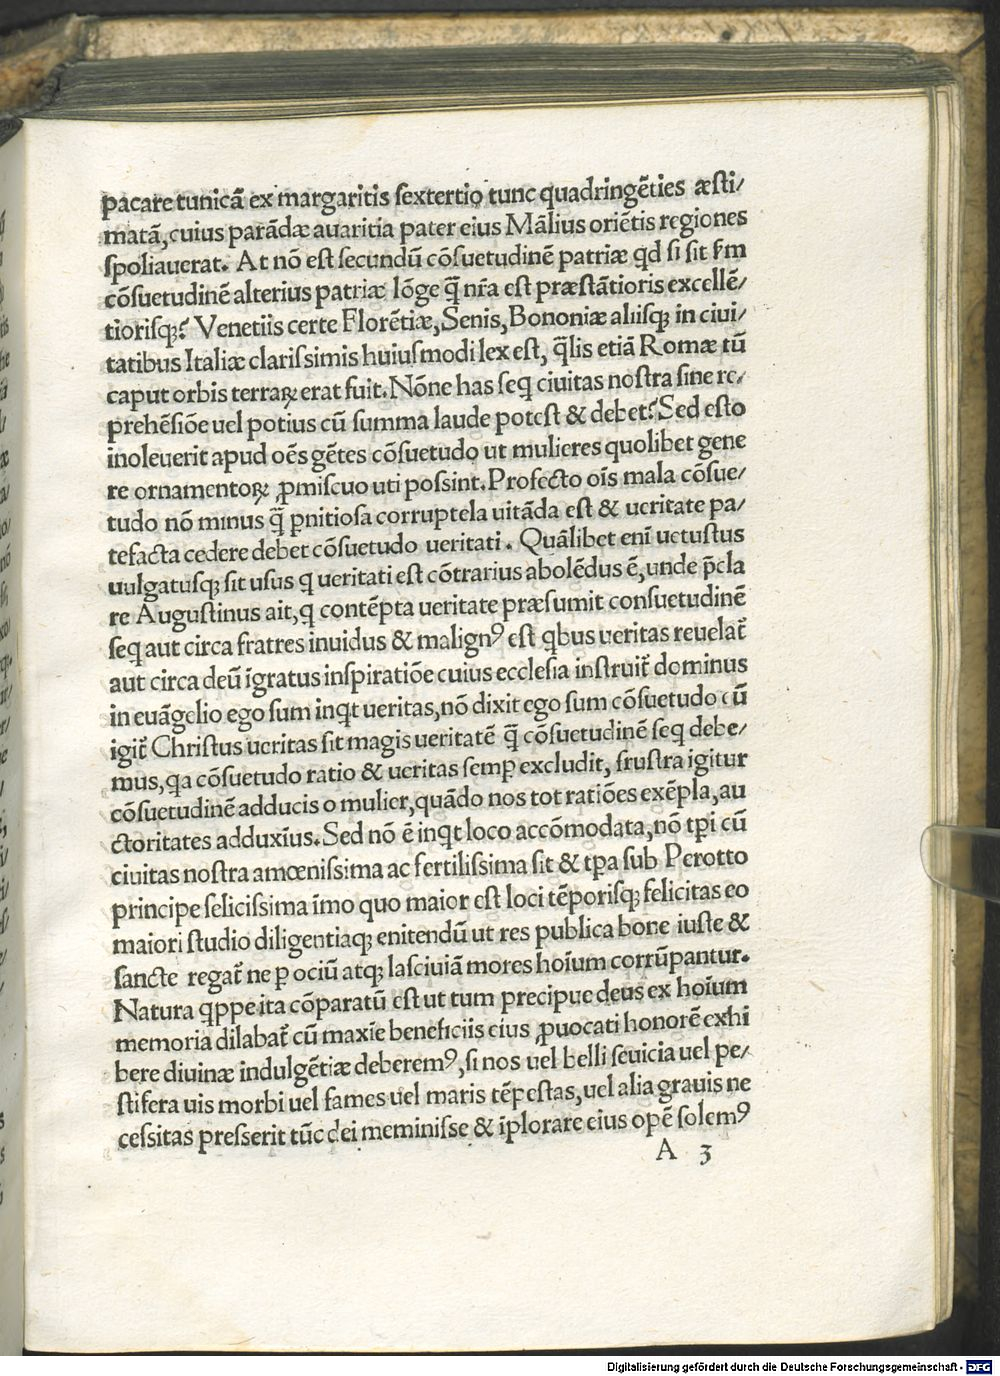 pacare tunicã ex margaritis sextertio tunc quadringẽties æsti/
matã, cuius parãdæ auaritia pater eius Mãlius oriẽtis regiones
spoliauerat. At nõ est secundũ cõsuetudinẽ patriæ qd si sit s̃m
cõsuetudinẽ alterius patriæ lõge q̃ nr̃a est præstãtioris excellẽ/
tiorisqꝫ? Venetiis certe Florẽtiæ, Senis, Bononiæ aliisqꝫ in ciui/
tatibus Italiæ clarissimis huiusmodi lex est, q̃lis etiã Romæ tũ
caput orbis terraꝝ erat fuit. Nõne has seq ciuitas nostra sine re/
prehẽsiõe uel potius cũ summa laude potest & debet? Sed esto
inoleuerit apud oẽs gẽtes cõsuetudo ut mulieres quolibet gene
re ornamentoꝝ ꝓmiscuo uti possint. Profecto oĩs mala cõsue/
tudo nõ minus q̃ ꝑnitiosa corruptela uitãda est & ueritate pa/
tefacta cedere debet cõsuetudo ueritati. Quãlibet enĩ uetustus
uulgatusqꝫ sit usus q ueritati est cõtrarius abolẽdus ẽ, unde p̃cla
re Augustinus ait, q contẽpta ueritate præsumit consuetudinẽ
seq aut circa fratres inuidus & malignꝰ est qbus ueritas reuelat̃
aut circa deũ ĩgratus inspiratiõe cuius ecclesia instruit̃ dominus
in euãgelio ego sum inqt ueritas, nõ dixit ego sum cõsuetudo cũ
igit̃ Christus ueritas sit magis ueritatẽ q̃ cõsuetudinẽ seq debe/
mus, qa cõsuetudo ratio & ueritas semꝑ excludit, frustra igitur
cõsuetudinẽ adducis o mulier, quãdo nos tot ratiões exẽpla, au
ctoritates adduxĩus. Sed nõ ẽ inqt loco accõmodata, nõ tꝑi cũ
ciuitas nostra amœnissima ac fertilissima sit & tꝑa sub Perotto
principe felicissima ĩmo quo maior est loci tẽporisqꝫ felicitas eo
maiori studio diligentiaqꝫ enitendũ ut res publica bone iuste &
sancte regat̃ ne ꝑ ociũ atqꝫ lasciuiã mores hoĩum corrũpantur.
Natura qppe ita cõparatũ est ut tum precipue deus ex hoĩum
memoria dilabat̃ cũ maxĩe beneficiis eius ꝓuocati honorẽ exhi
bere diuinæ indulgẽtiæ deberemꝰ, si nos uel belli seuicia uel pe/
stifera uis morbi uel fames uel maris tẽpestas, uel alia grauis ne
cessitas presserit tũc dei meminisse & ĩplorare eius opẽ solemꝰ
A 3
Digitalisierung gefördert durch die Deutsche Forschungsgemeinschaft - DFG